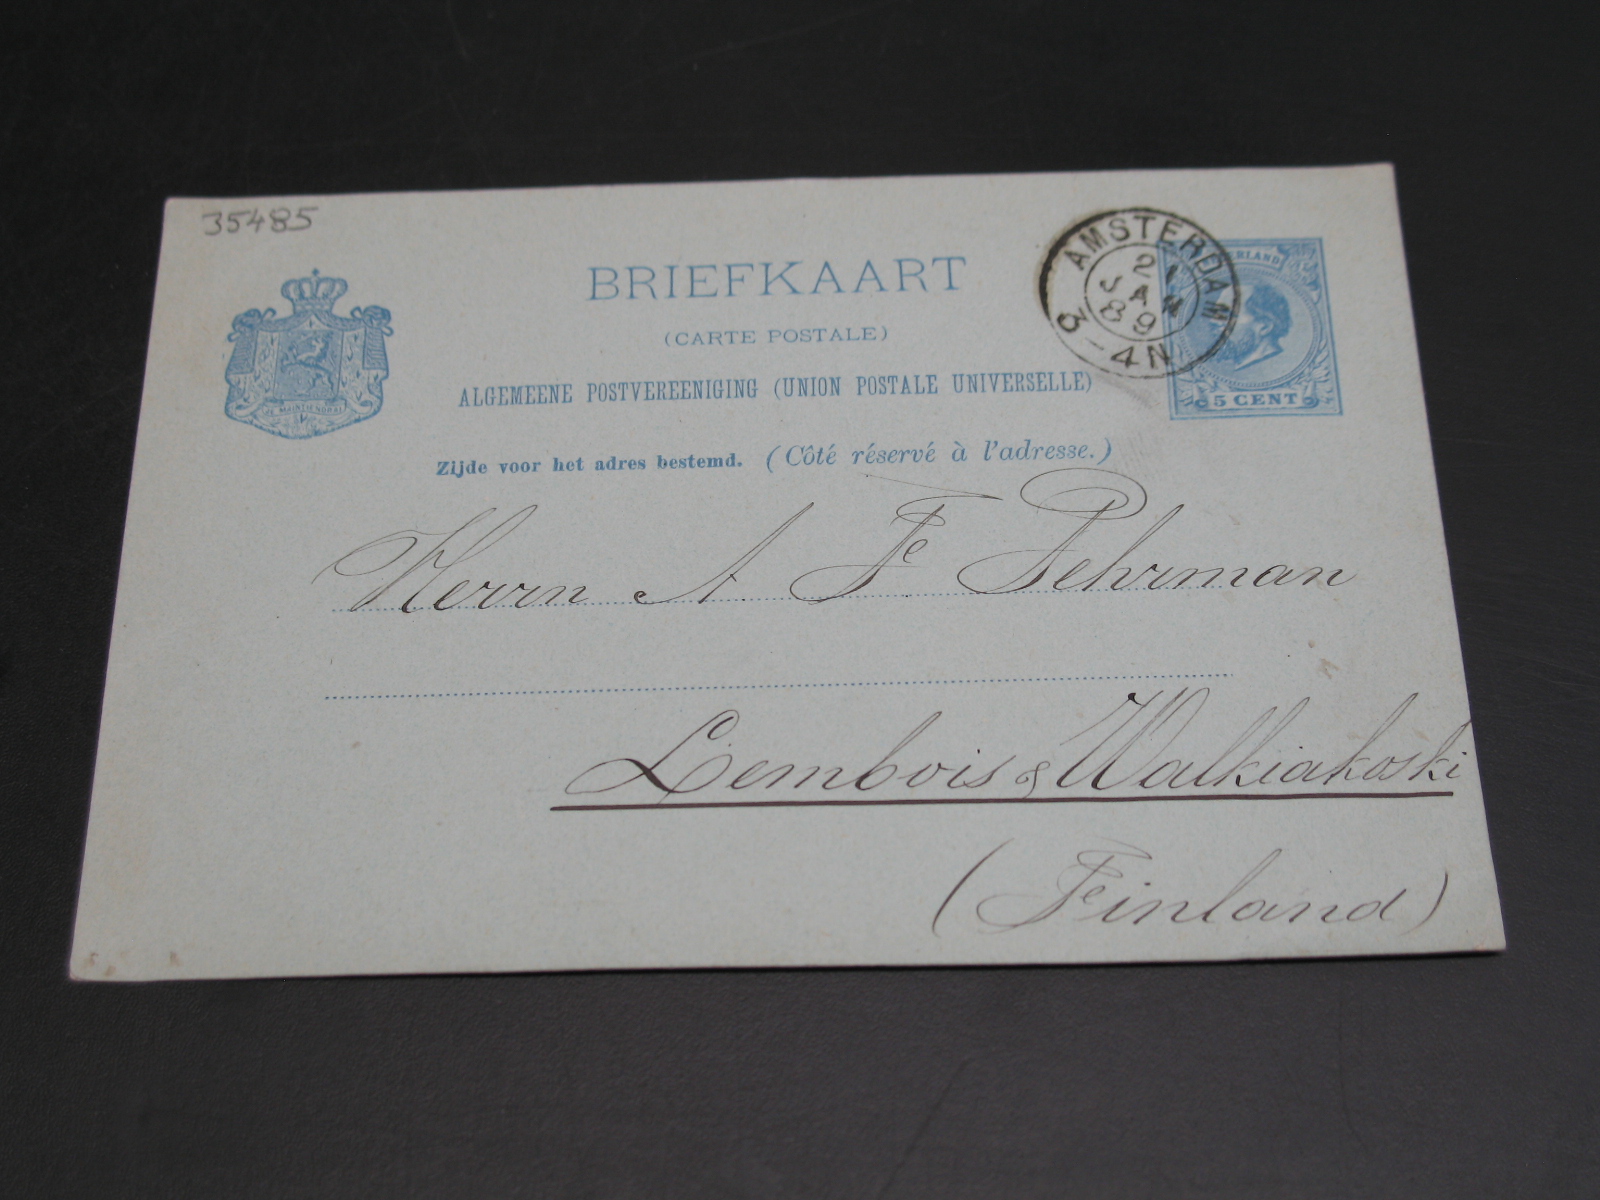 35485
BRIEFKAART
(CARTE POSTALE)
ALGEMEENE POSTVEREENIGING (UNION POSTALE UNIVERSELLE)
Zijde voor het adres bestemd. (Côté réservé à l'adresse.)
JE MAINTIENDRAI
AMSTERDAM
21
JA
89
3-4N
5 CENT
Herrn A. F. Pehrman
Lembois & Walkiakoski
(Finland)